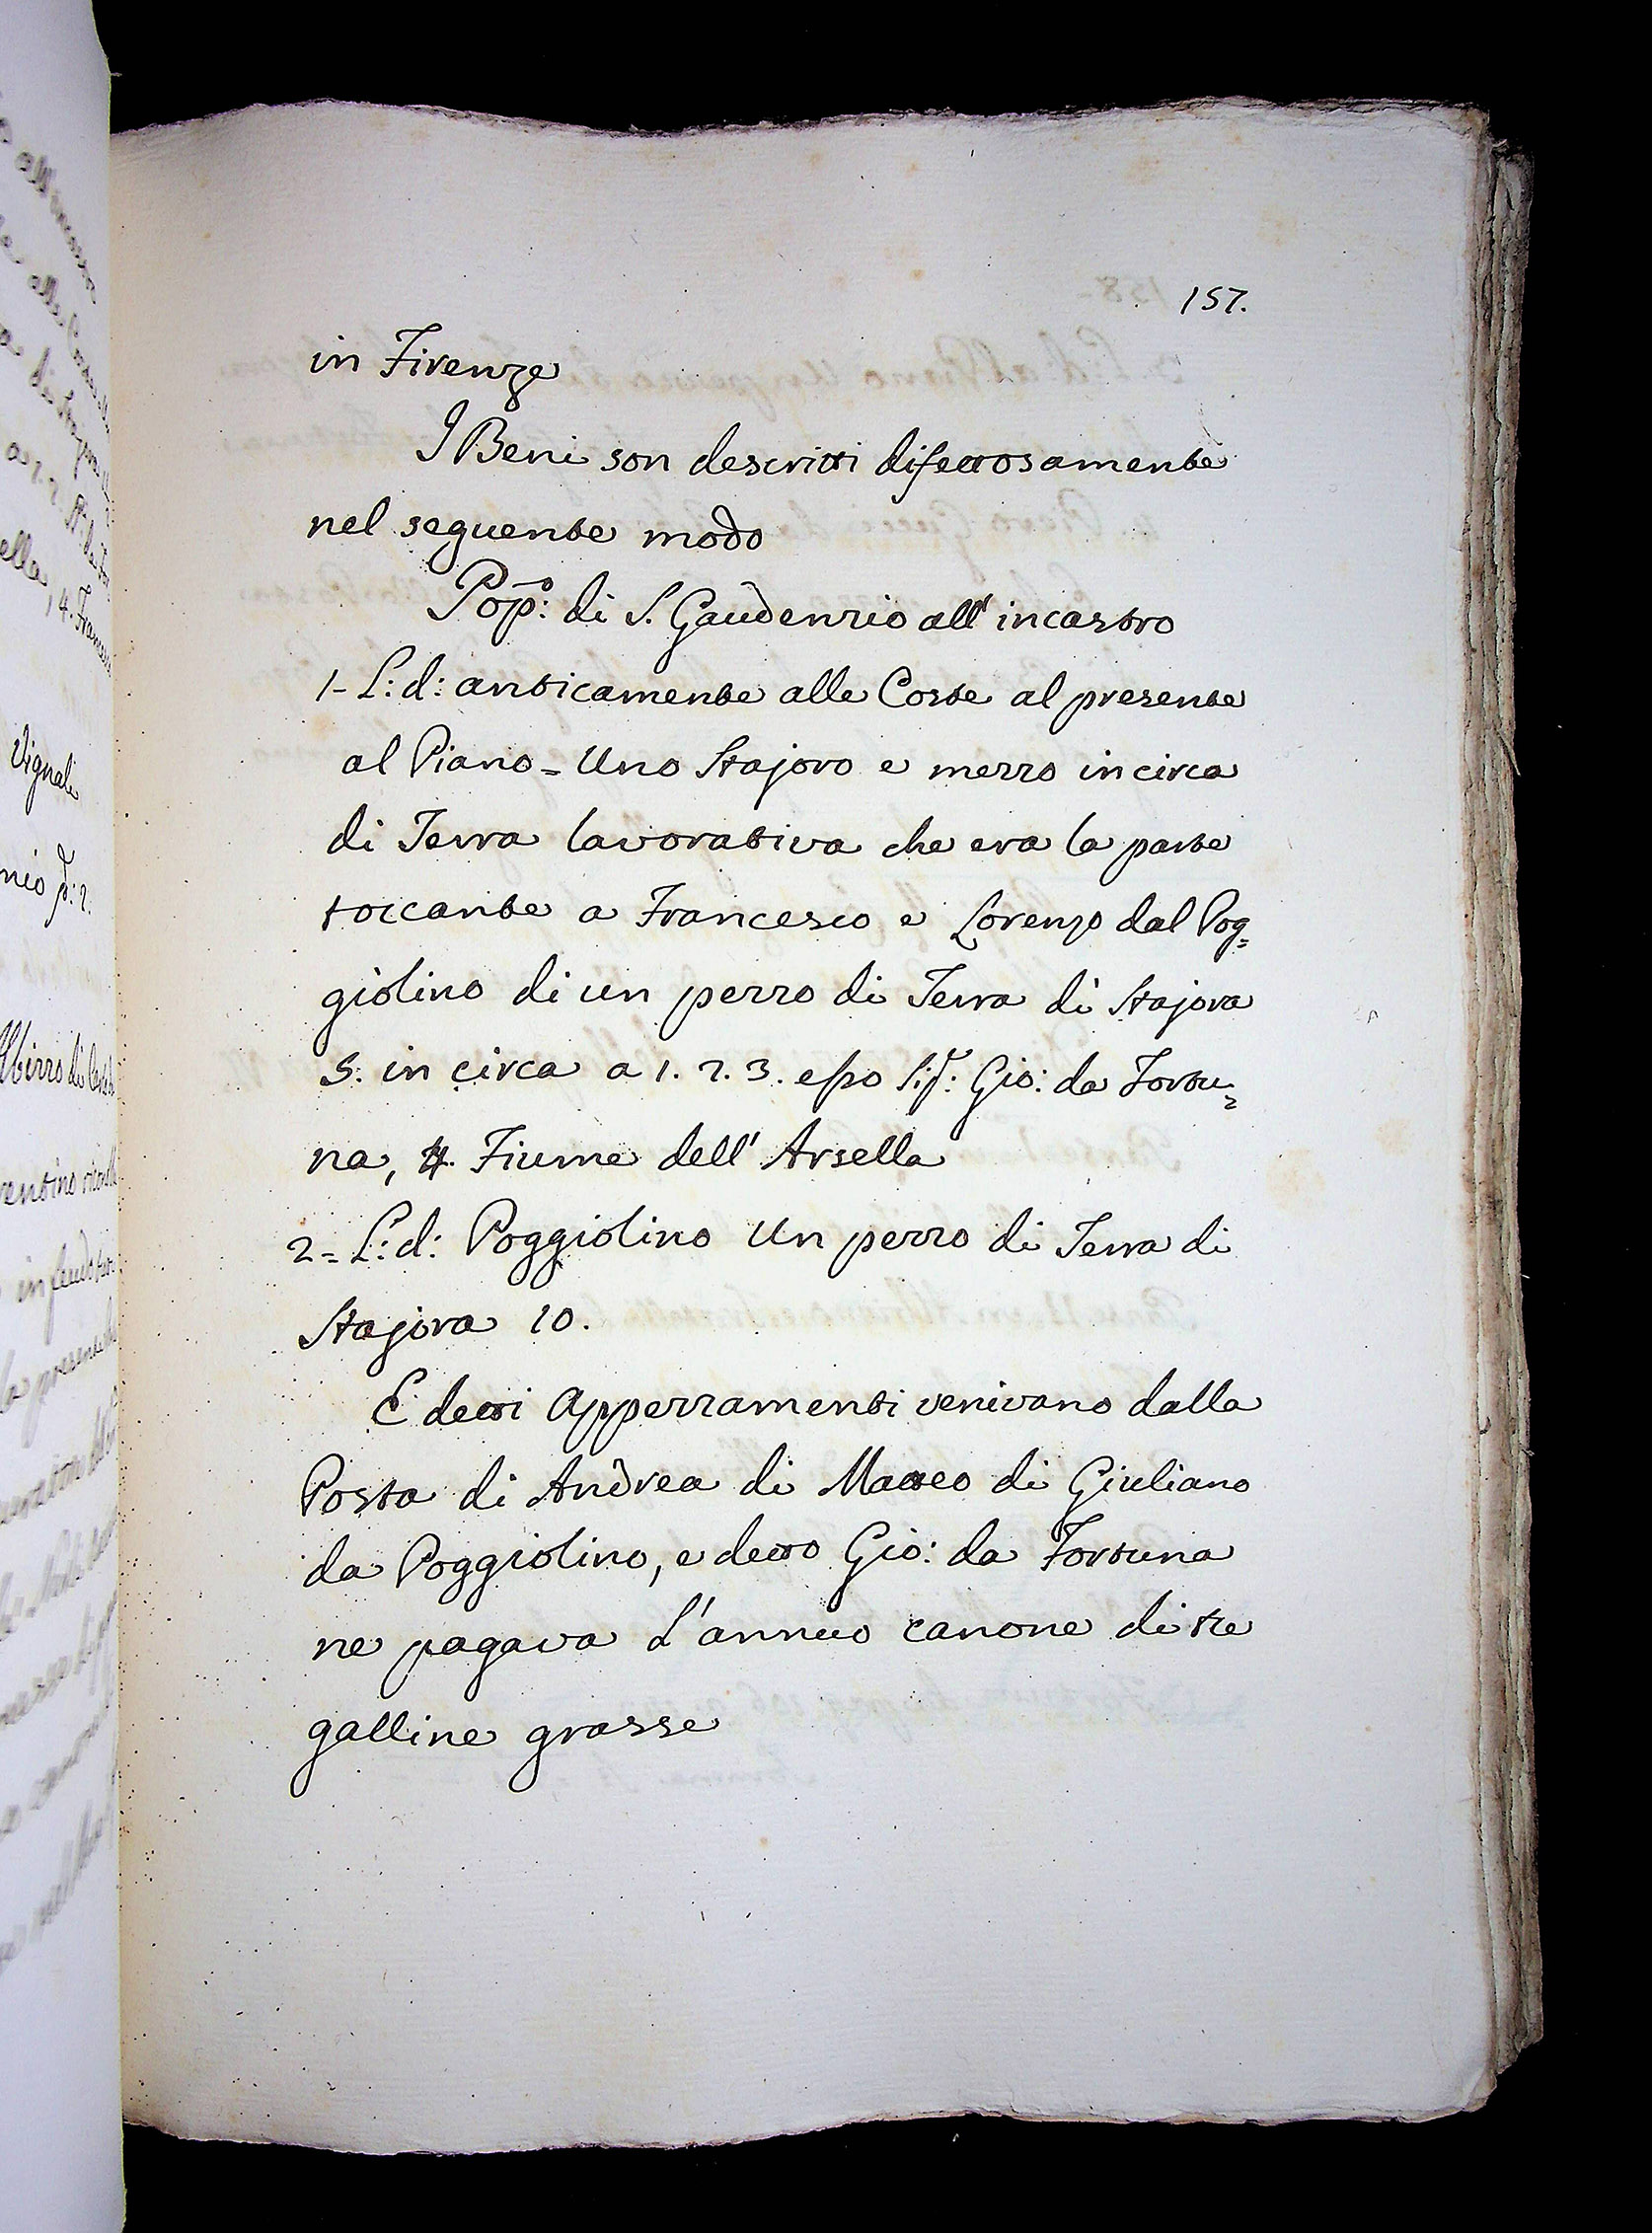 157.
in Firenze
I Beni son descritti difettosamente
nel seguente modo
Pop.o: di S. Gaudenzio all' incastro
1- L: d: anticamente alle Coste al presente
al Piano = Uno Stajoro e mezzo in circa
di Terra lavorativa che era la parte
toccante a Francesco e Lorenzo dal Pog=
giolino di un pezzo di Terra di Stajora
5. in circa a 1. 2. 3. esso Sig.r: Gio: da Fortu=
na, 4. Fiume dell' Arsella
2= L: d: Poggiolino Un pezzo di Terra di
Stajora 10.
E detti Appezzamenti venivano dalla
Posta di Andrea di Matteo di Giuliano
da Poggiolino, e detto Gio: da Fortuna
ne pagava l'annuo canone di tre
galline grasse
Vignali